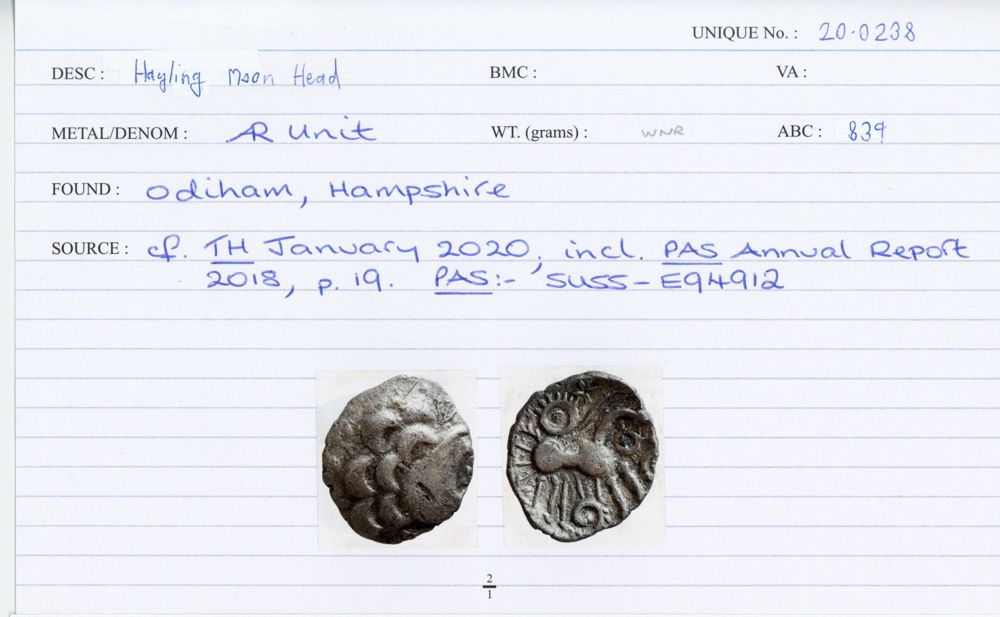 UNIQUE No. : 20.0238
DESC : Hayling Moon Head BMC : VA :
METAL/DENOM : AR Unit WT. (grams) : WNR ABC : 839
FOUND : Odiham, Hampshire
SOURCE : cf. TH January 2020, incl. PAS Annual Report
2018, p. 19. PAS:- SUSS-E94912
2
1